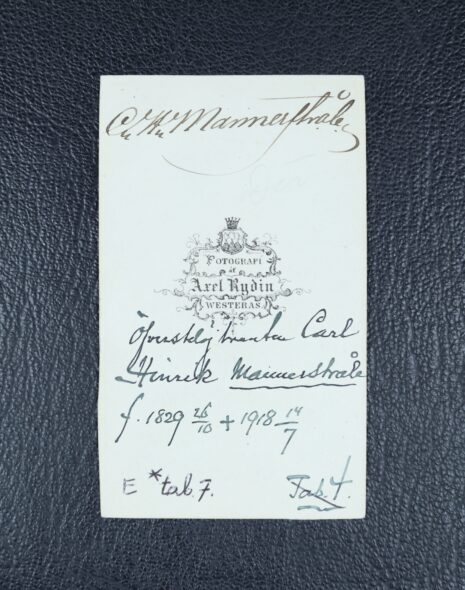 C. Hn Mannerstråle
FOTOGRAFI
af
Axel Rydin
WESTERAS.
Öfverstelöjtnanten Carl
Hinrik Mannerstråle
f. 1829 26/10 + 1918 14/7
E *tab. 7.
Tab. 4.